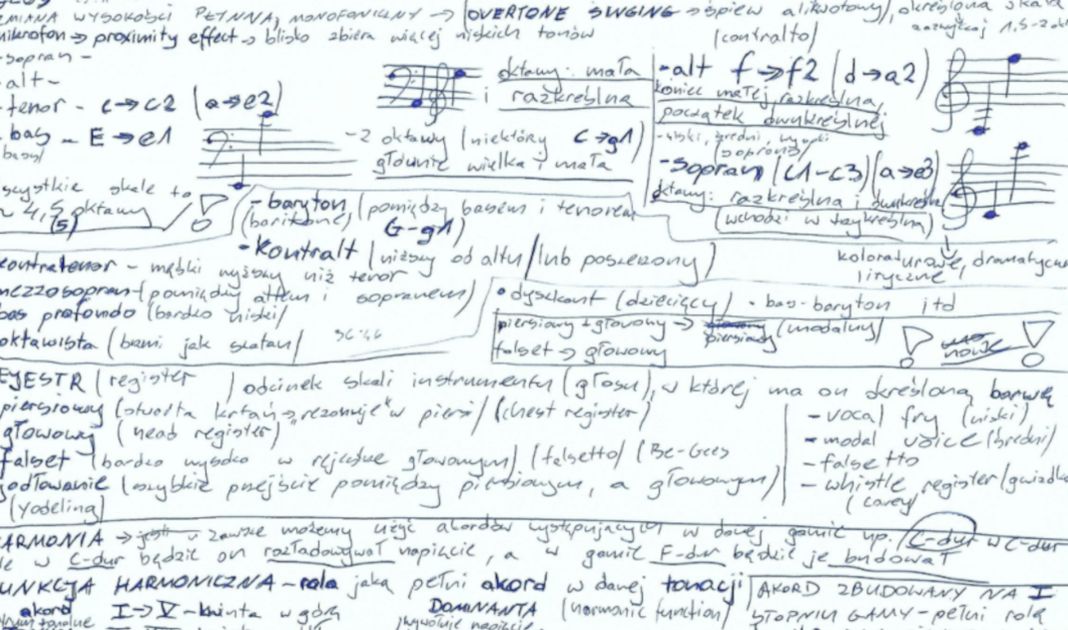 ZMIANA WYSOKOŚCI PŁYNNA, MONOFONICZNY → OVERTONE SINGING → śpiew alikwotowy, określona skala
mikrofon → proximity effect → blisko zbiera więcej niskich tonów
zazwyczaj 1,5-2
(contralto)
- sopran -
- alt -
- tenor - c→c2 (a→e2)
- bas - E→e1
(bass)
oktawy: mała
i razkreślna
- 2 oktawy (niektóry C→g1)
głównie wielka i mała
- alt f→f2 (d→a2)
koniec małej, razkreślna,
początek dwukreślnej
- niski, średni, wysoki
(soprano)
- sopran (c1-c3)(a→e3)
oktawy: razkreślna i dwukreślna
(wchodzi w trzykreślną)
↓
koloraturowe, dramatyczne
liryczne
wszystkie skale to
~ 4,5 oktawy
(5)
- baryton (pomiędzy basem i tenorem
(baritone) G-g1)
- kontralt (niższy od altu/lub poszerzony)
kontratenor - męski wyższy niż tenor
mezzosopran - (pomiędzy altem i sopranem)
bas profondo (bardzo niski)
oktawista (brzmi jak szatan)
36:46
• dyszkant (dziecięcy) • bas-baryton itd
piersiowy + głowowy → piersiowy (modalny)
falset → głowowy
nowe
REJESTR (register) odcinek skali instrumentu (głosu), w której ma on określoną barwę
piersiowy (otwarta krtań, „rezonuje” w piersi) (chest register)
głowowy (head register)
falset (bardzo wysoko w rejestrze głowowym) (falsetto) (Bee-Gees
jodłowanie (szybkie przejście pomiędzy piersiowym, a głowowym)
(yodeling)
- vocal fry (niski)
- modal voice (średni)
- falsetto
- whistle register (gwizdk
(Carey)
HARMONIA → jest u zawsze możemy użyć akordów występujących w danej gamie np. C-dur w C-dur
ale w C-dur będzie on rozładowywał napięcie, a w gamie F-dur będzie je budował
FUNKCJA HARMONICZNA - rola jaką pełni akord w danej tonacji
(harmonic function)
AKORD ZBUDOWANY NA I
STOPNIU GAMY - pełni rolę
akord I→V - kwinta w górę
DOMINANTA
(wywołuje napięcie)